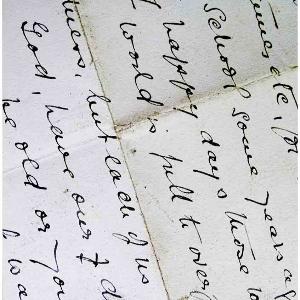 times etc, for
School some years a
happy days those w
I would is full to over
ness, but each of us
God, have our
be old or you
wa